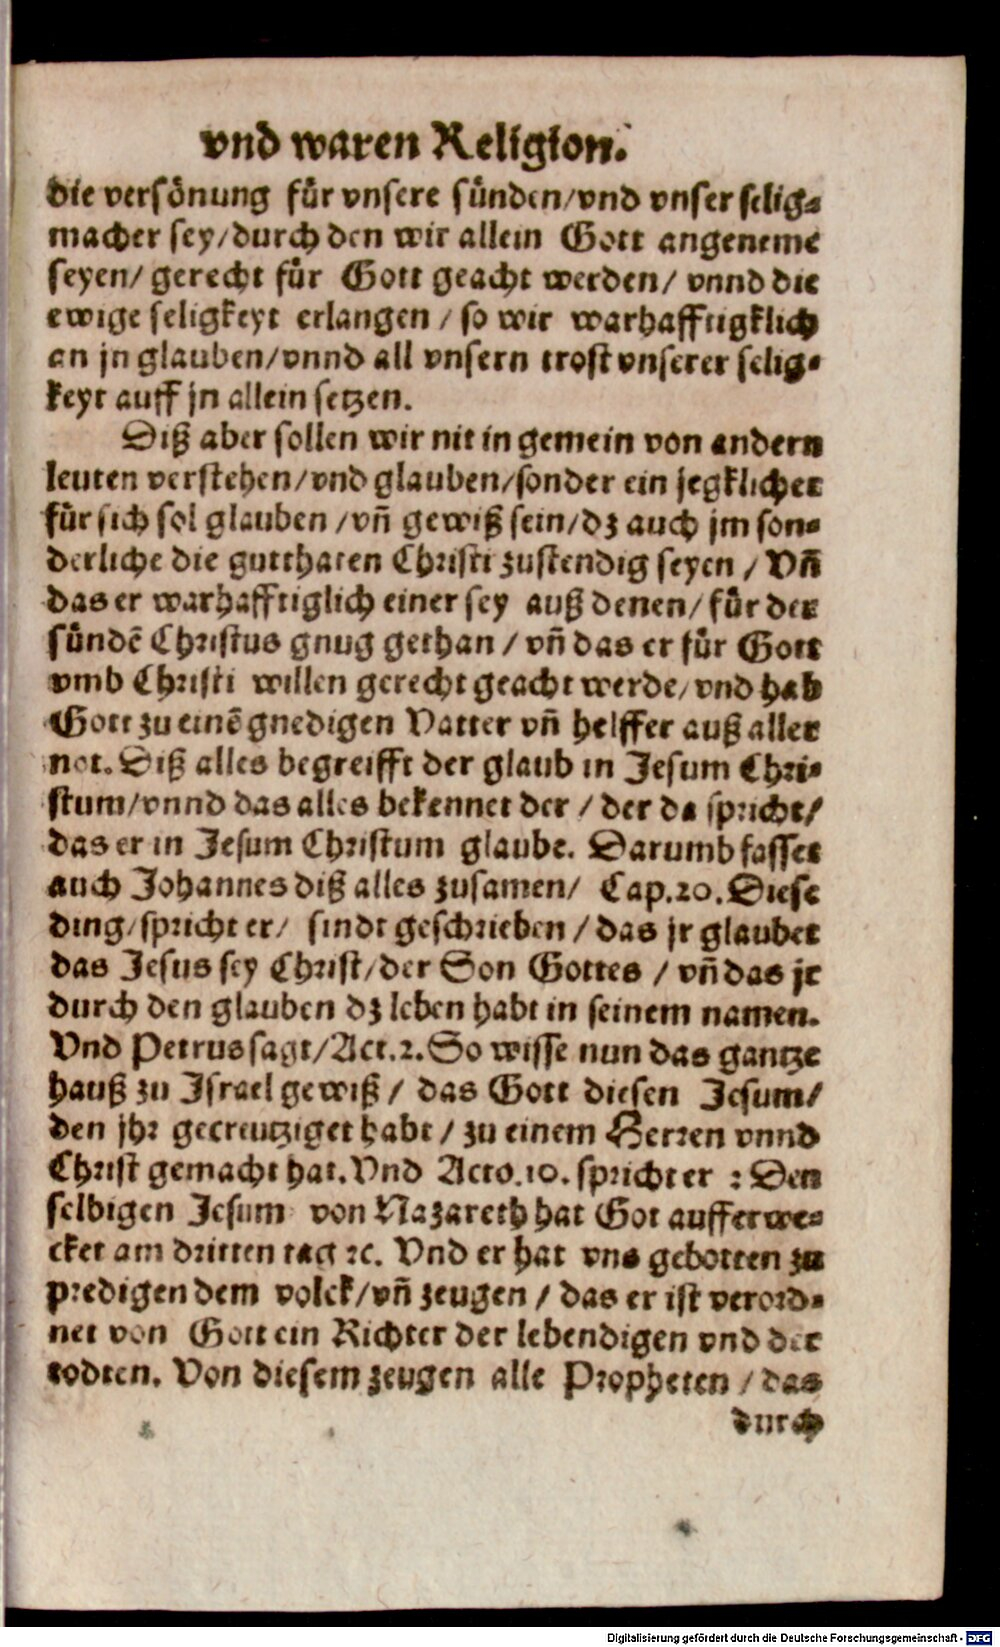 vnd waren Religion.
die versönung für vnsere sünden/vnd vnser selig⸗
macher sey/durch den wir allein Gott angeneme
seyen/ gerecht für Gott geacht werden/ vnnd die
ewige seligkeyt erlangen / so wir warhafftigklich
an jn glauben/vnnd all vnsern trost vnserer selig⸗
keyt auff jn allein setzen.
Diß aber sollen wir nit in gemein von andern
leuten verstehen/vnd glauben/sonder ein jegklicher
für sich sol glauben /vñ gewiß sein/dz auch jm son⸗
derliche die gutthaten Christi zustendig seyen / Vñ
das er warhafftiglich einer sey auß denen/ für der
sündē Christus gnug gethan / vñ das er für Gott
vmb Christi willen gerecht geacht werde/ vnd hab
Gott zu einē gnedigen Vatter vñ helffer auß aller
not. Diß alles begreifft der glaub in Jesum Chri⸗
stum/vnnd das alles bekennet der / der da spricht/
das er in Jesum Christum glaube. Darumb fasset
auch Johannes diß alles zusamen/ Cap.20. Diese
ding/spricht er/ sindt geschrieben / das jr glaubet
das Jesus sey Christ/der Son Gottes / vñ das jr
durch den glauben dz leben habt in seinem namen.
Vnd Petrus sagt/Act.2. So wisse nun das gantze
hauß zu Israel gewiß / das Gott diesen Jesum/
den jhr gecreutziget habt / zu einem Herren vnnd
Christ gemacht hat. Vnd Acto.10. spricht er : Den
selbigen Jesum von Nazareth hat Got aufferwe⸗
cket am dritten tag ꝛc. Vnd er hat vns gebotten zu
predigen dem volck/vñ zeugen / das er ist verord⸗
net von Gott ein Richter der lebendigen vnd der
todten. Von diesem zeugen alle Propheten / das
durch
Digitalisierung gefördert durch die Deutsche Forschungsgemeinschaft - DFG